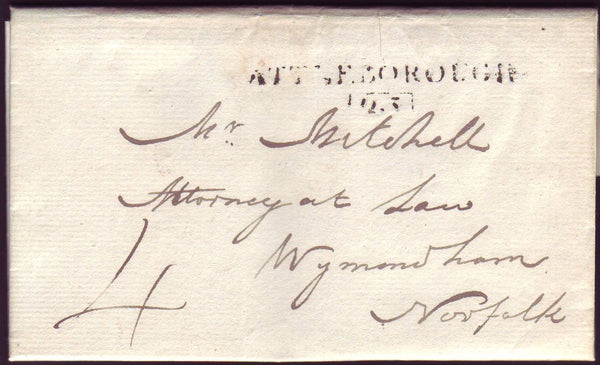 ATTLEBOROUGH
Mr. Mitchell
Attorney at Law
Wymondham
Norfolk
4